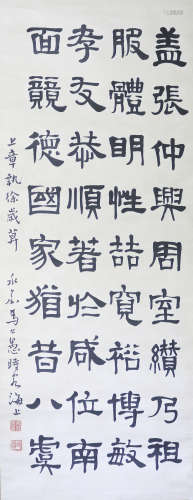 盖張仲興周室纘乃祖
服體明性喆寬裕博敏
孝友恭順著於咸位南
面競德國家猶昔八虞
上章執徐歲莫 永嘉馬公愚時客海上